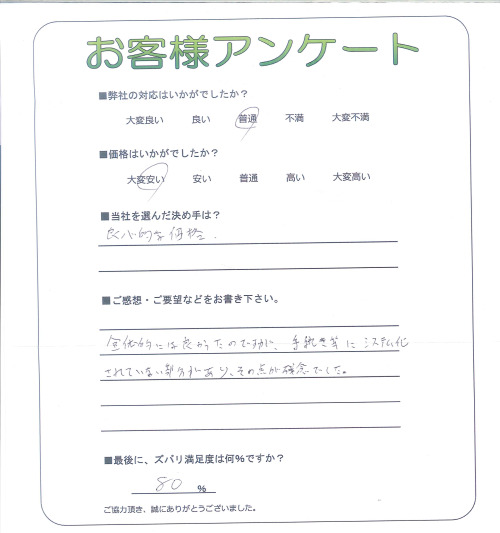 お客様アンケート
■弊社の対応はいかがでしたか?
大変良い 良い 普通 不満 大変不満
■価格はいかがでしたか?
大変安い 安い 普通 高い 大変高い
■当社を選んだ決め手は?
良心的な価格.
■ご感想・ご要望などをお書き下さい。
全体的には良かったのですが、手続き等にシステム化
されていない部分があり、その点が残念でした。
■最後に、ズバリ満足度は何%ですか?
80 %
ご協力頂き、誠にありがとうございました。